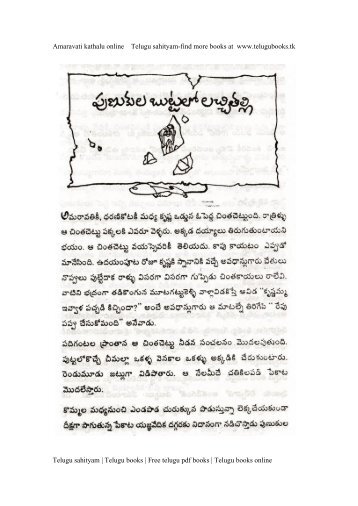 Amaravati kathalu online    Telugu sahityam-find more books at  www.telugubooks.tk
పుణుకుల బుట్టలో లచ్చితల్లి
అమరావతికీ, ధరణికోటకీ మధ్య కృష్ణ ఒడ్డున ఓ పెద్ద చింతచెట్టుంది. రాత్రిళ్ళు
ఆ చింతచెట్టు పక్కలకి ఎవరూ వెళ్ళరు. అక్కడ దయ్యాలు తిరుగుతుంటాయని
భయం. ఆ చింతచెట్టు వయస్సెవరికీ తెలియదు. కాపు కాయటం ఎప్పుడో
మానేసింది. ఉదయంపూట రోజూ కృష్ణకి స్నానానికి వచ్చే అవధాన్లుగారు చేతులు
నొప్పులు పుట్టేదాక రాళ్ళు విసరగా విసరగా గుప్పెడు చింతకాయలు రాలేవి.
వాటిని భద్రంగా తడికొంగున మూటగట్టుకెళ్ళి వాళ్ళావిడకిస్తే ఆవిడ "కృష్ణమ్మ
ఇవ్వాళ పచ్చడి కిచ్చిందా?" అంటే అవధాన్లుగారు ఆ మాటల్నే తిరగేసి "రేపు
పప్పు చేసుకోమంది" అనేవాడు.
పదిగంటల ప్రాంతాన ఆ చింతచెట్టు నీడన సంచలనం మొదలవుతుంది.
పుట్టలోకొచ్చే చీమల్లా ఒకళ్ళ వెనకాల ఒకళ్ళు అక్కడికి చేరుకుంటారు.
రెండుమూడు జట్లుగా విడిపోతారు. ఆ నేలమీదే చతికిలపడి పేకాట
మొదలేస్తారు.
కొమ్మల మధ్యనుంచి ఎండపొడ చురుక్కున పొడుస్తున్నా లెక్కచేయకుండా
దీక్షగా సాగుతున్న పేకాట యజ్ఞవేదిక దగ్గరకు నిదానంగా నడిచొస్తాడు పుణుకుల
Telugu sahityam | Telugu books | Free telugu pdf books | Telugu books online